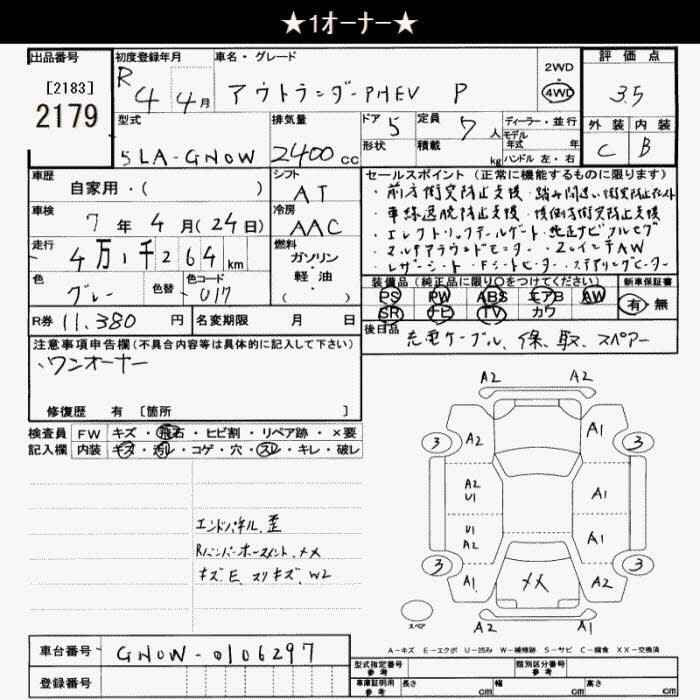 ★1オーナー★
出品番号
[2183]
2179
初度登録年月
R4 4月
車名・グレード
アウトランダーPHEV P
2WD
4WD
評価点
3.5
外装 内装
C B
型式
5LA-GN0W
排気量
2400cc
ドア 5
形状
定員 7人
積載 kg
ディーラー・並行
モデル年式 年
ハンドル 左・右
車歴
自家用・( )
シフト
AT
車検
7年4月(24日)
冷房
AAC
走行
4万1千264km
燃料
ガソリン
・
軽油
( )
色
グレー
色替
色コード
U17
R券 11,380円
名変期限 月 日
セールスポイント(正常に機能するものに限ります)
・前方衝突防止支援・踏み間違い衝突防止アシスト
・車線逸脱防止支援・後側方衝突防止支援
・エレクトリックテールゲート・純正ナビフルセグ
・マルチアラウンドモニター・20インチAW
・レザーシート・Fシートヒーター・ステアリングヒーター
装備品(純正品に限り○をつけてください)
PS PW ABS エアB AW
SR ナビ TV カワ
新車保証書
有・無
後日品
充電ケーブル、保、取、スペアー
注意事項申告欄(不具合内容等は具体的に記入して下さい)
、ワンオーナー
修復歴 有 [箇所 ]
検査員 FW キズ・飛石・ヒビ割・リペア跡・×要
記入欄 内装 キズ・汚レ・コゲ・穴・スレ・キレ・破レ
エンドパネル、歪
Rバンパーホースメント、××
キズ、E、スリキズ、W2
A2 A2
3 A2 A1 3
A2
U1
A1
U1
A2
A1
3 A1 ×× A2 3
スペア
A2 A1
A-キズ E-エクボ U-凹み W-補修跡 S-サビ C-腐食 XX-交換済
車台番号 GN0W-0106297
登録番号
型式指定番号
参考
類別区分番号
参考
車庫証明用
参考
長さ cm 幅 cm 高さ cm